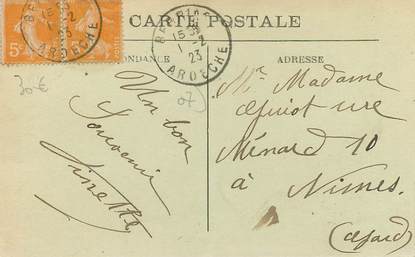 CARTE POSTALE
ONDANCE
ADRESSE
5c
15
1 -2
23
ARDECHE
30€
07
Un bon
Souvenir
Mr Madame
rue
Ménard 10
à Nimes
(Gard)